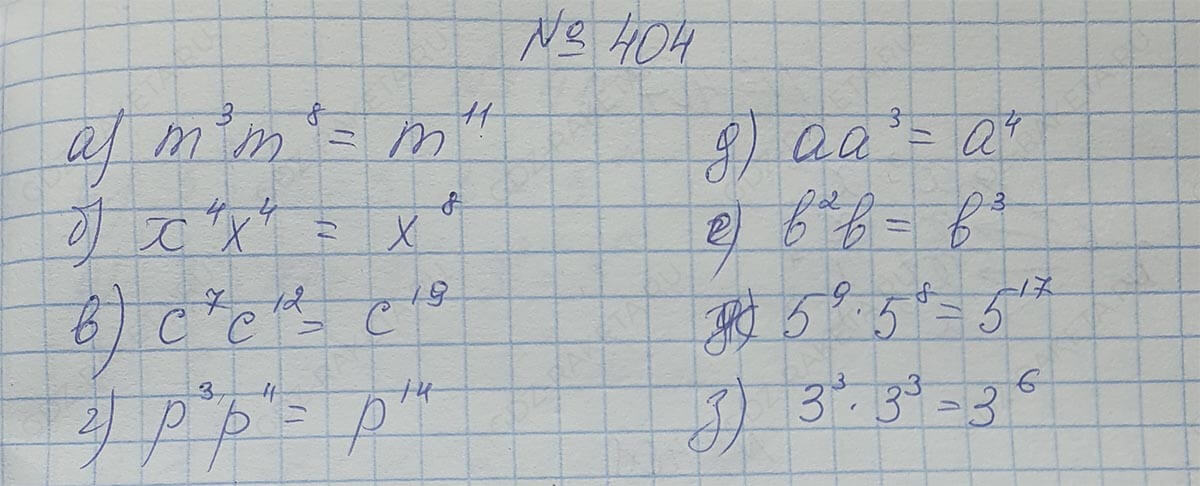 № 404
а) m³m⁸ = m¹¹
б) x⁴x⁴ = x⁸
в) c⁷c¹² = c¹⁹
г) p³p¹¹ = p¹⁴
д) aa³ = a⁴
е) b²b = b³
ж) 5⁹·5⁸ = 5¹⁷
з) 3³·3³ = 3⁶